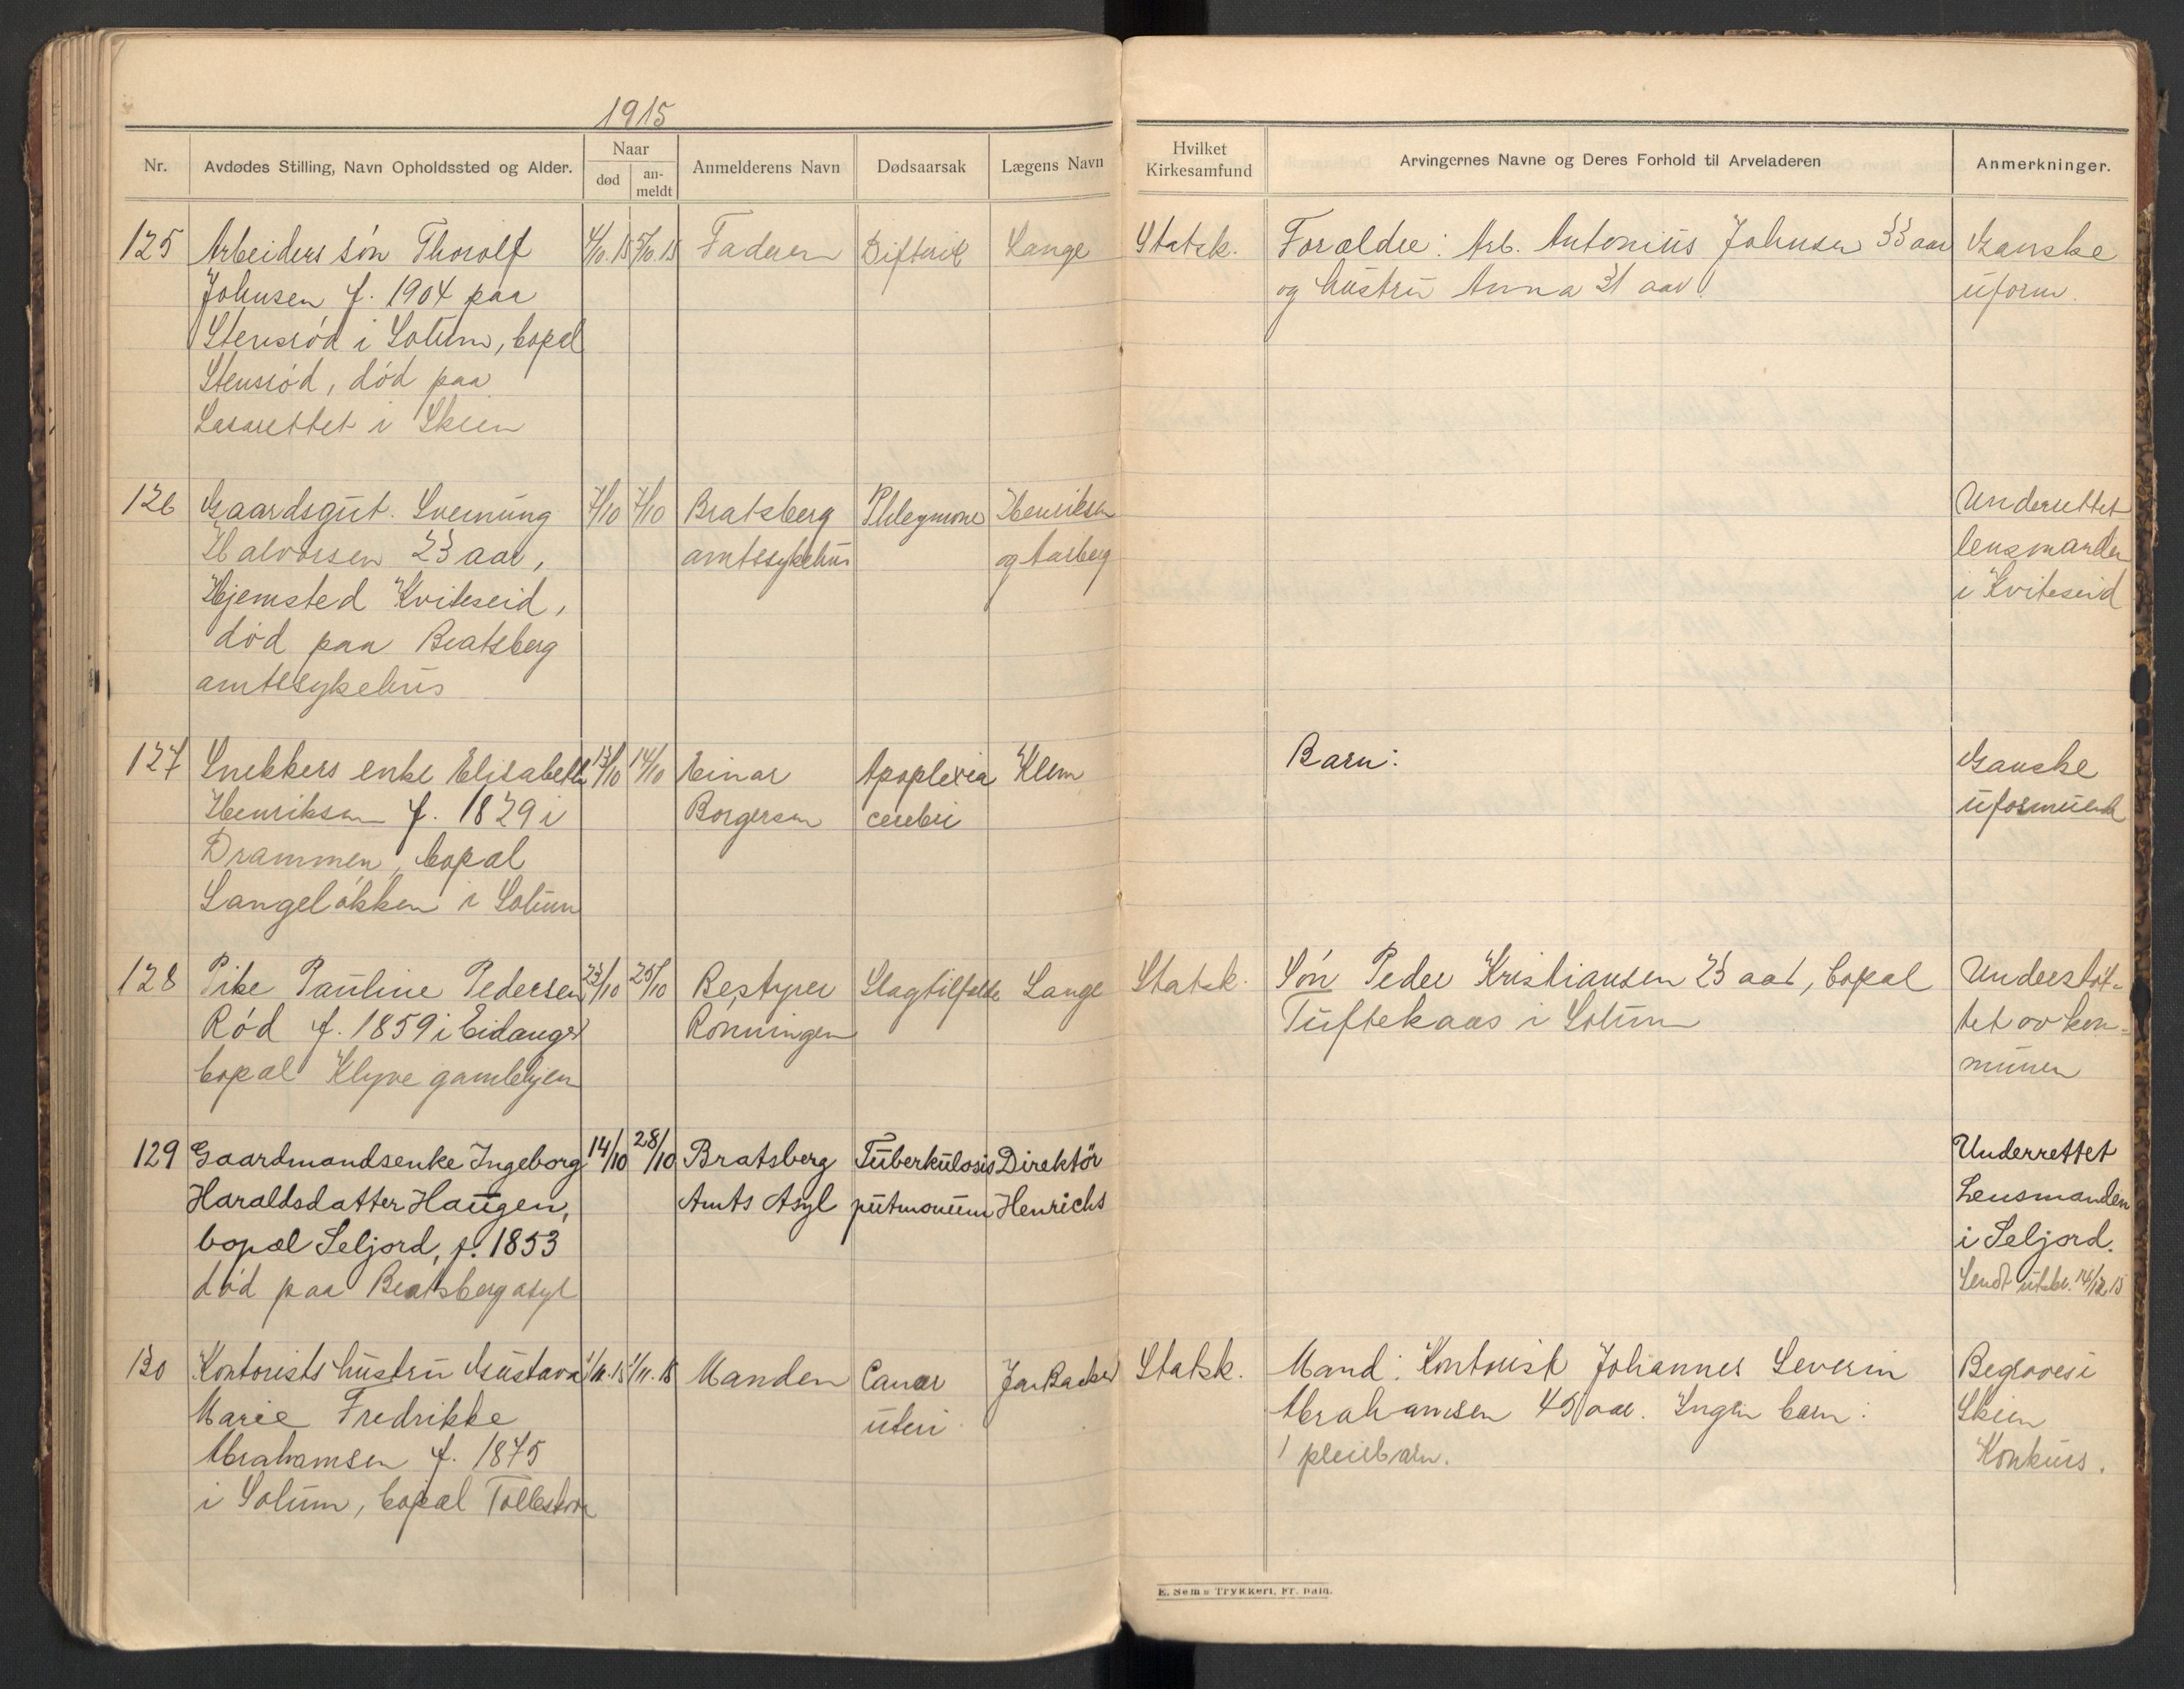 1915
Nr. Avdødes Stilling, Navn Opholdssted og Alder. Naar død an-meldt Anmelderens Navn Dødsaarsak Lægens Navn Hvilket Kirkesamfund Arvingernes Navne og Deres Forhold til Arveladeren Anmerkninger.
125 Arbeiders søn Thorolf 4/10.15 5/10.15 Faderen Difteri Lange Statsk. Forældre: Arb. Antonius Johnsen 33 aar Ganske
Johnsen f. 1904 paa og hustru Anna 31 aar uform.
Stensrød i Solum, bopæl
Stensrød, død paa
Lasarettet i Skien
126 Gaardsgut. Sveinung 7/10 7/10 Bratsberg Phlegmone Henriksen Underrettet
Halvorsen 23 aar, amtssykehus og Aarberg lensmanden
Hjemsted Kviteseid, i Kviteseid
død paa Bratsberg
amtssykehus
127 Snekkers enke Elisabeth 13/10 14/10 Einar Apoplexia Klem Barn: Ganske
Henriksen f. 1829 i Borgersen cerebri uformuende
Drammen, bopæl
Langeløkken i Solum
128 Pike Pauline Pedersen 23/10 25/10 Bestyrer Slagtilfælde Lange Statsk. Søn Peder Kristiansen 23 aar, bopæl Understøt-
Rød f. 1859 i Eidanger Rønningen Tuftekaas i Solum tet av kom-
bopæl Klyve gamlehjem munen
129 Gaardmandsenke Ingeborg 14/10 28/10 Bratsberg Tuberkulosis Direktör Underrettet
Haraldsdatter Haugen, Amts Asyl pulmonum Henrichs Lensmanden
bopæl Seljord, f. 1853 i Seljord.
død paa Bratsberg asyl Sendt utskr. 14/12 15
130 Kontorists hustru Gustava 1/11.15 1/11.15 Manden Cancer Statsk. Mand: Kontorist Johannes Severin Begraves i
Marie Fredrikke uteri Abrahamsen 45 aar. Ingen barn: Skien
Abrahamsen f. 1875 1 pleiebarn. Konkurs.
i Solum, bopæl
E. Sems Trykkeri, Fr.hald.